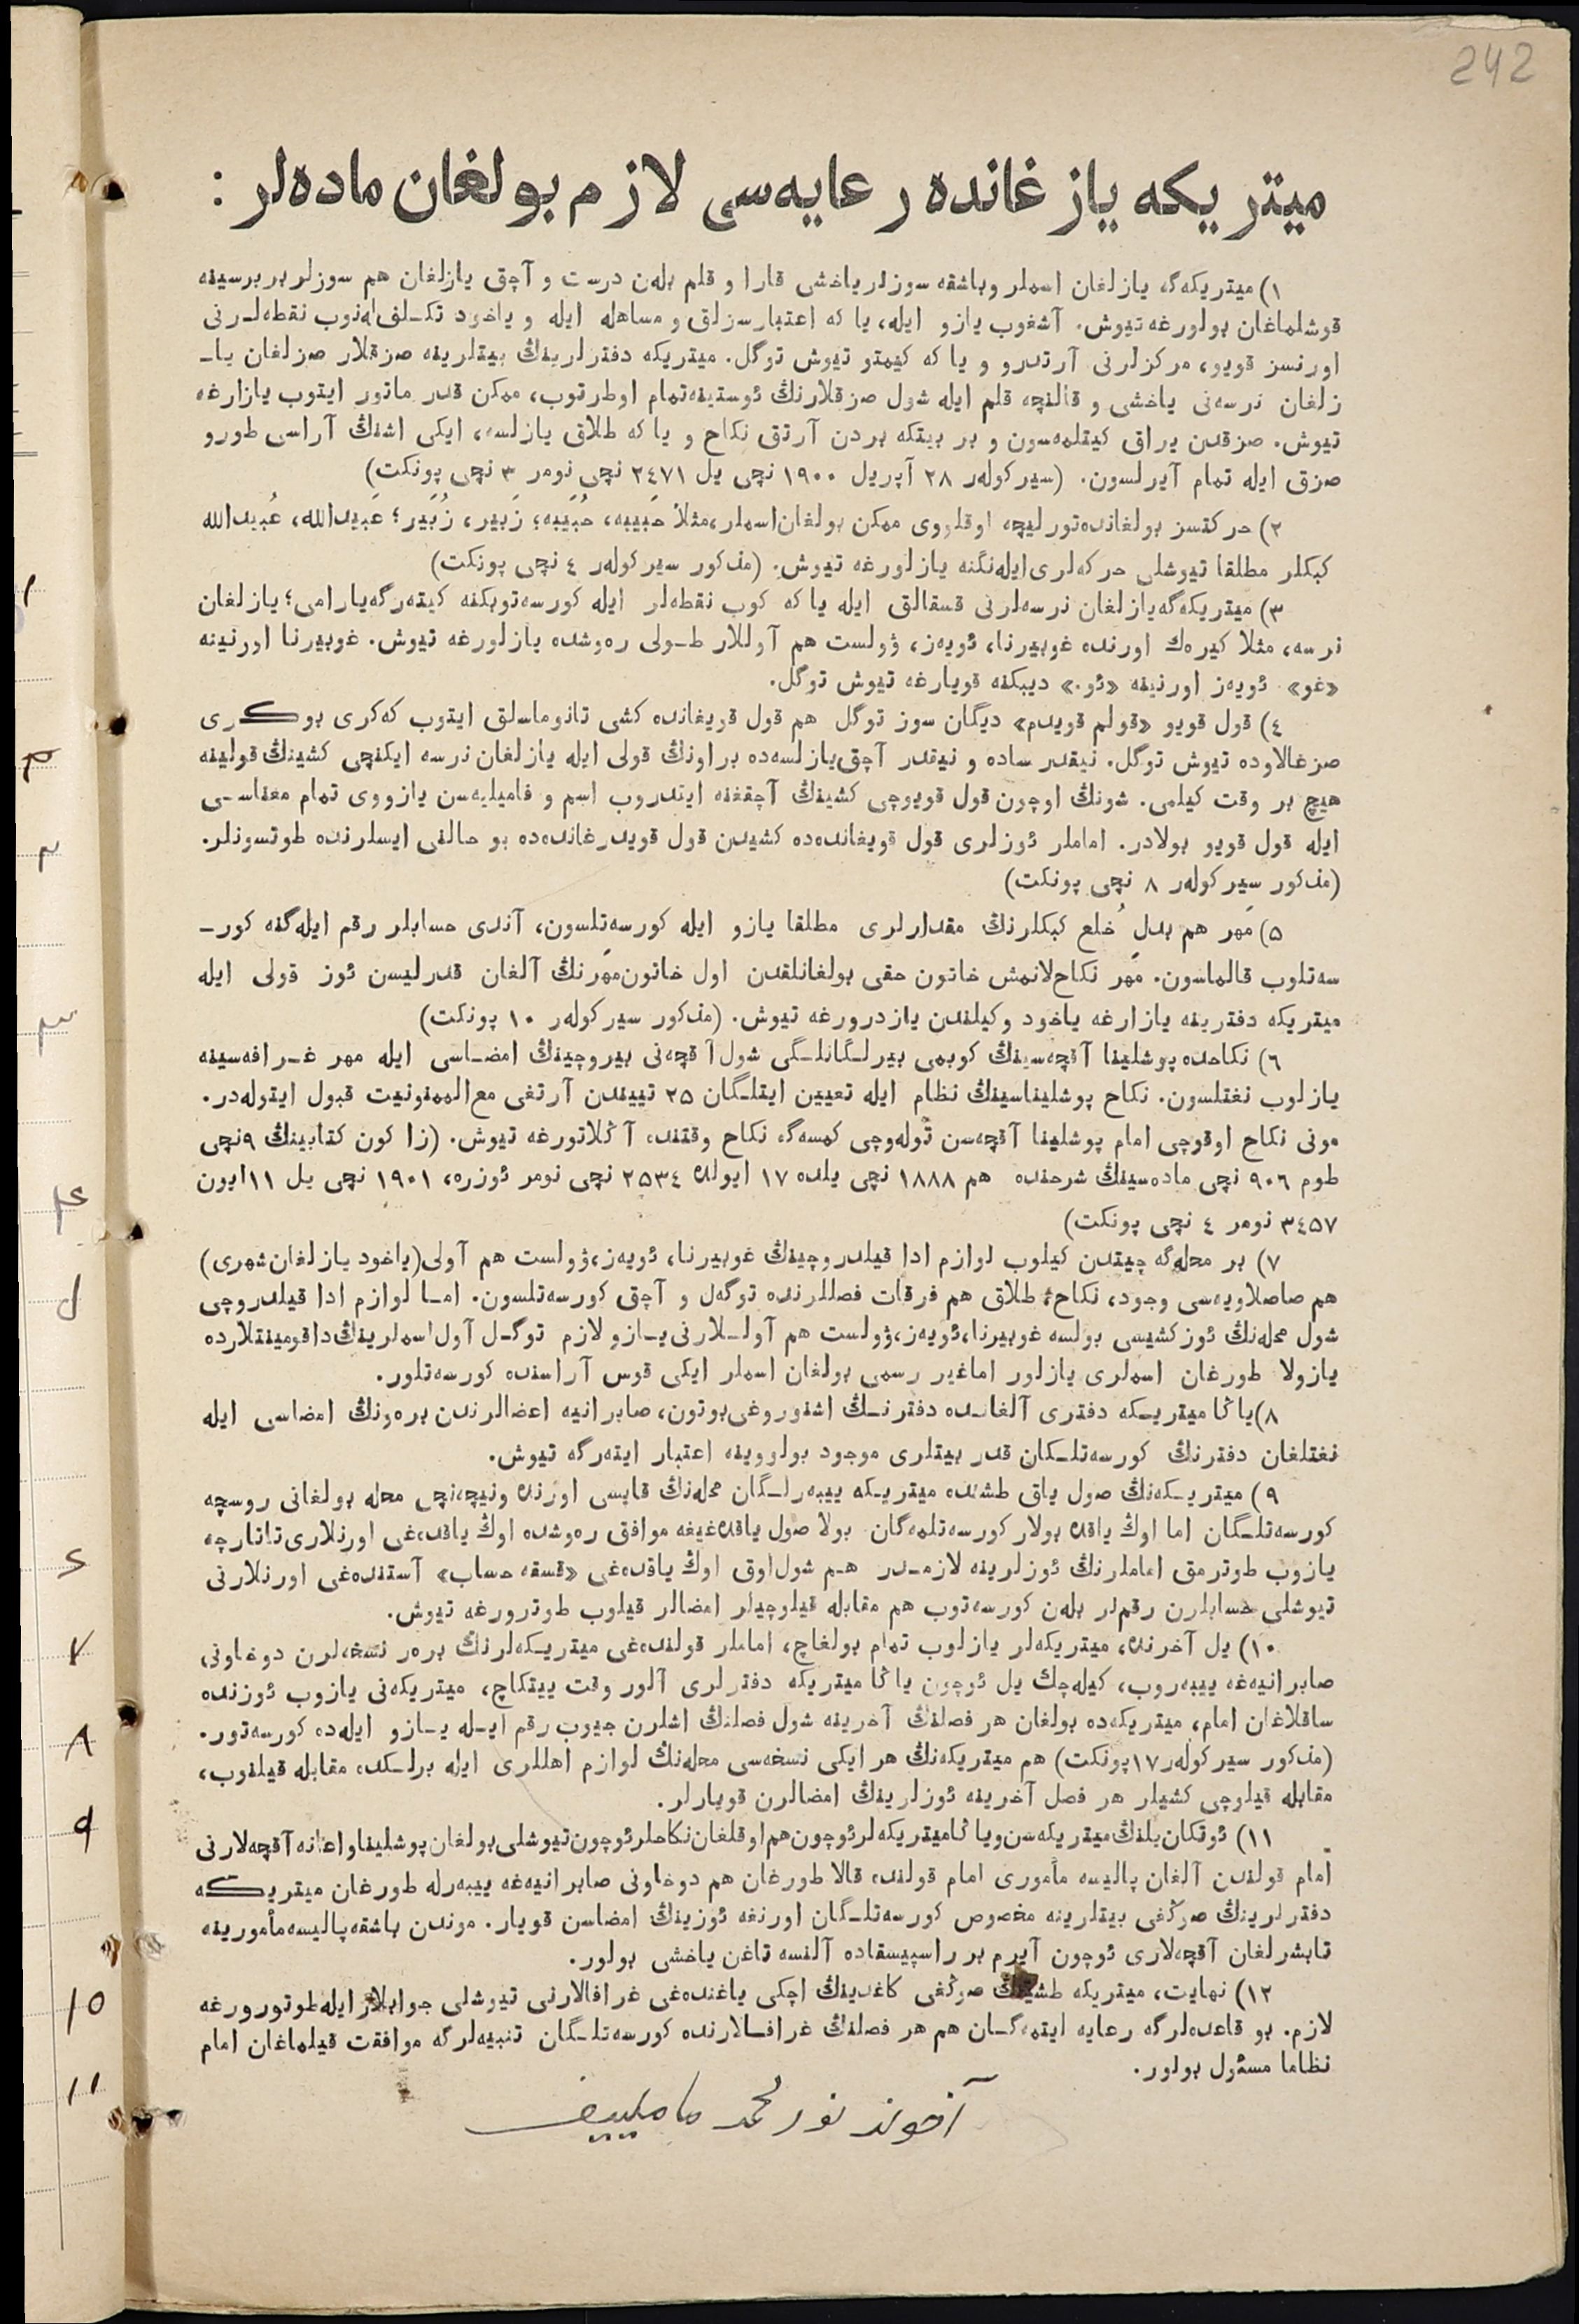 242
میتریکه یازغانده رعایه‌سی لازم بولغان ماده‌لر :
۱) میتریکه‌گه یازلغان اسملر وباشقه سوزلر یاخشی قارا و قلم بله‌ن درست و آچق یازلغان هم سوزلر بربرسینه
قوشلماغان بولورغه تیوش. آشغوب یازو ایله، یا که اعتبارسزلق و مساهله ایله و یاخود تکـلف‌له‌نوب نقطه‌لـرنی
اورنسز قویو، مرکزلرنی آرتدرو و یا که کیمتو تیوش توگل. میتریکه دفترلرینڭ بیتلرینه صزقلار صزلغان یاـ
زلغان نرسه‌نی یاخشی و قالنچه قلم ایله شول صزقلارنڭ ئوستینه‌تمام اوطرتوب، ممکن قدر ماتور ایتوب یازارغه
تیوش. صزقدن یراق کیتلمه‌سون و بر بیتکه بردن آرتق نکاح و یا که طلاق یازلسه، ایکی اشنڭ آراسی طورو
صزق ایله تمام آیرلسون. (سیرکوله‌ر ۲۸ آپریل ۱۹۰۰ نچی یل ۲٤۷۱ نچی نومر ۳ نچی پونکت)
۲) حرکتسز بولغانده‌تورلیچه اوقلووی ممکن بولغان‌اسملر،مثلا حَبیبه، حُبَیبه؛ زَبیر، زُبَیر؛ عَبیدالله، عُبیدالله
کبکلر مطلقا تیوشلی حرکه‌لری‌ایله‌نگنه یازلورغه تیوش. (مذکور سیرکوله‌ر ٤ نچی پونکت)
۳) میتریکه‌گه‌یازلغان نرسه‌لرنی قسقالق ایله یا که کوب نقطه‌لر ایله کورسه‌توبکنه کیته‌رگه‌یارامی؛ یازلغان
نرسه، مثلا کیره‌ك اورنده غوبیرنا، ئویه‌ز، ۋولست هم آوللار طـولی ره‌وشده یازلورغه تیوش. غوبیرنا اورنینه
«غو» ئویه‌ز اورنینه «ئو.» دیبکنه قویارغه تیوش توگل.
٤) قول قویو «قولم قویدم» دیگان سوز توگل هم قول قویغانده کشی تانوماسلق ایتوب که‌کری بوکـری
صزغالاوده تیوش توگل. نیقدر ساده و نیقدر آچق‌یازلسه‌ده براونڭ قولی ایله یازلغان نرسه ایکنچی کشینڭ قولینه
هیچ بر وقت کیلمی. شونڭ اوچون قول قویوچی کشینڭ آچقغنه ایتدروب اسم و فامیلیه‌سن یازووی تمام معناسـی
ایله قول قویو بولادر. اماملر ئوزلری قول قویغانده‌ده کشیدن قول قویدرغانده‌ده بو حالنی ایسلرنده طوتسونلر.
(مذکور سیرکوله‌ر ۸ نچی پونکت)
۵) مَهر هم بدل خُلع کبکلرنڭ مقدارلری مطلقا یازو ایله کورسه‌تلسون، آندی حسابلر رقم ایله‌گنه کورـ
سه‌تلوب قالماسون. مَهر نکاح‌لانمش خاتون حقی بولغانلقدن اول خاتون‌مهرنڭ آلغان قدرلیسن ئوز قولی ایله
میتریکه دفترینه یازارغه یاخود وکیلندن یازدرورغه تیوش. (مذکور سیرکوله‌ر ۱۰ پونکت)
٦) نکاحده پوشلینا آقچه‌سینڭ کوبمی بیرلـگانلـگی شول آقچه‌نی بیروچینڭ امضـاسی ایله مهر غـرافه‌سینه
یازلوب نغتلسون. نکاح پوشلیناسینڭ نظام ایله تعیین ایتلـگان ۲۵ تییندن آرتغی مع‌الممنونیت قبول ایتوله‌در.
مونی نکاح اوقوچی امام پوشلینا آقچه‌سن تۆله‌وچی کمسه‌گه نکاح وقتنده آڭلاتورغه تیوش. (زاکون کتابینڭ ۹نچی
طوم ۹۰٦ نچی ماده‌سینڭ شرحنده هم ۱۸۸۸ نچی یلده ۱۷ ایولده ۲۵۳٤ نچی نومر ئوزره، ۱۹۰۱ نچی یل ۱۱ایون
۳٤۵۷ نومر ٤ نچی پونکت)
۷) بر محله‌گه چیتدن کیلوب لوازم ادا قیلدروچینڭ غوبیرنا، ئویه‌ز،ۋولست هم آولی(یاخود یازلغان‌شهری)
هم صاصلاویه‌سی وجود، نکاح، طلاق هم فرقات فصللرنده توگه‌ل و آچق کورسه‌تلسون. امـا لوازم ادا قیلدروچی
شول محله‌نڭ ئوزکشیسی بولسه غوبیرنا،ئویه‌ز،ۋولست هم آولـلارنی‌یـازو لازم توگـل آول‌اسملرینڭ‌داقومینتلارده
یازولا طورغان اسملری یازلور اماغیر رسمی بولغان اسملر ایکی قوس آراسنده کورسه‌تلور.
۸)یاڭا میتریـکه دفتری آلغانـده دفترنـڭ اشنوروغی‌بوتون، صابرانیه اعضالرندن بره‌ونڭ امضاسی ایله
نغتلغان دفترنڭ کورسه‌تلـکان قدر بیتلری موجود بولووینه اعتبار ایته‌رگه تیوش.
۹) میتریـکه‌نڭ صول یاق طشنده میتریـکه ییبه‌رلـگان محله‌نڭ قایسی اوزنده ونیچه‌نچی محله بولغانی روسچه
کورسه‌تلـگان اما اوڭ یاقده بولار کورسه‌تلمه‌گان بولا صول یاقده‌غیغه موافق ره‌وشده اوڭ یاقده‌غی اورنلاری‌تاتارچه
یازوب طوترمق اماملرنڭ ئوزلرینه لازمـدر هـم شول‌اوق اوڭ یاقده‌غی «قسقه حساب» آستنده‌غی اورنلارنی
تیوشلی حسابلرن رقملر بله‌ن کورسه‌توب هم مقابله قیلوچیلر امضالر قیلوب طوترورغه تیوش.
۱۰) یل آخرنده، میتریکه‌لر یازلوب تمام بولغاچ، اماملر قولنده‌غی میتریـکه‌لرنڭ بره‌ر نسخه‌لرن دوخاونی
صابرانیه‌غه ییبه‌روب، کیله‌چك یل ئوچون یاڭا میتریکه دفترلری آلور وقت ییتکاچ، میتریکه‌نی یازوب ئوزنده
ساقلاغان امام، میتریکه‌ده بولغان هر فصلنڭ آخرینه شول فصلنڭ اشلرن جیوب رقم ایـله یـازو ایله‌ده کورسه‌تور.
(مذکور سیرکوله‌ر۱۷پونکت) هم میتریکه‌نڭ هر ایکی نسخه‌سی محله‌نڭ لوازم اهللری ایله برلـکده مقابله قیلنوب،
مقابله قیلوچی کشیلر هر فصل آخرینه ئوزلرینڭ امضالرن قویارلر.
۱۱) ئوتکان‌یلنڭ‌میتریکه‌سن‌ویاڭامیتریکه‌لرئوچون‌هم‌اوقلغان‌نکاحلرئوچون‌تیوشلی‌بولغان‌پوشلیناواعانه‌آقچه‌لارنی
امام قولندن آلغان پالیسه مأموری امام قولنده قالا طورغان هم دوخاونی صابرانیه‌غه ییبه‌رله طورغان میتریـکه
دفترلرینڭ صوڭغی بیتلرینه مخصوص کورسه‌تلـگان اورنغه ئوزینڭ امضاسن قویار. موندن باشقه‌پالیسه‌مأمورینه
تابشرلغان آقچه‌لاری ئوچون آیرم بر راسپیسقاده آلنسه تاغن یاخشی بولور.
۱۲) نهایت، میتریکه طشینڭ صوڭغی کاغدینڭ اچکی یاغنده‌غی غرافالارنی تیوشلی جوابلار ایله‌طوتورورغه
لازم. بو قاعده‌لرگه رعایه ایتمه‌گـان هم هر فصلنڭ غرافـالارنده کورسه‌تلـگان تنبیه‌لرگه موافقت قیلماغان امام
نظاما مسئول بولور.
آخوند نورمحمد ماملییف